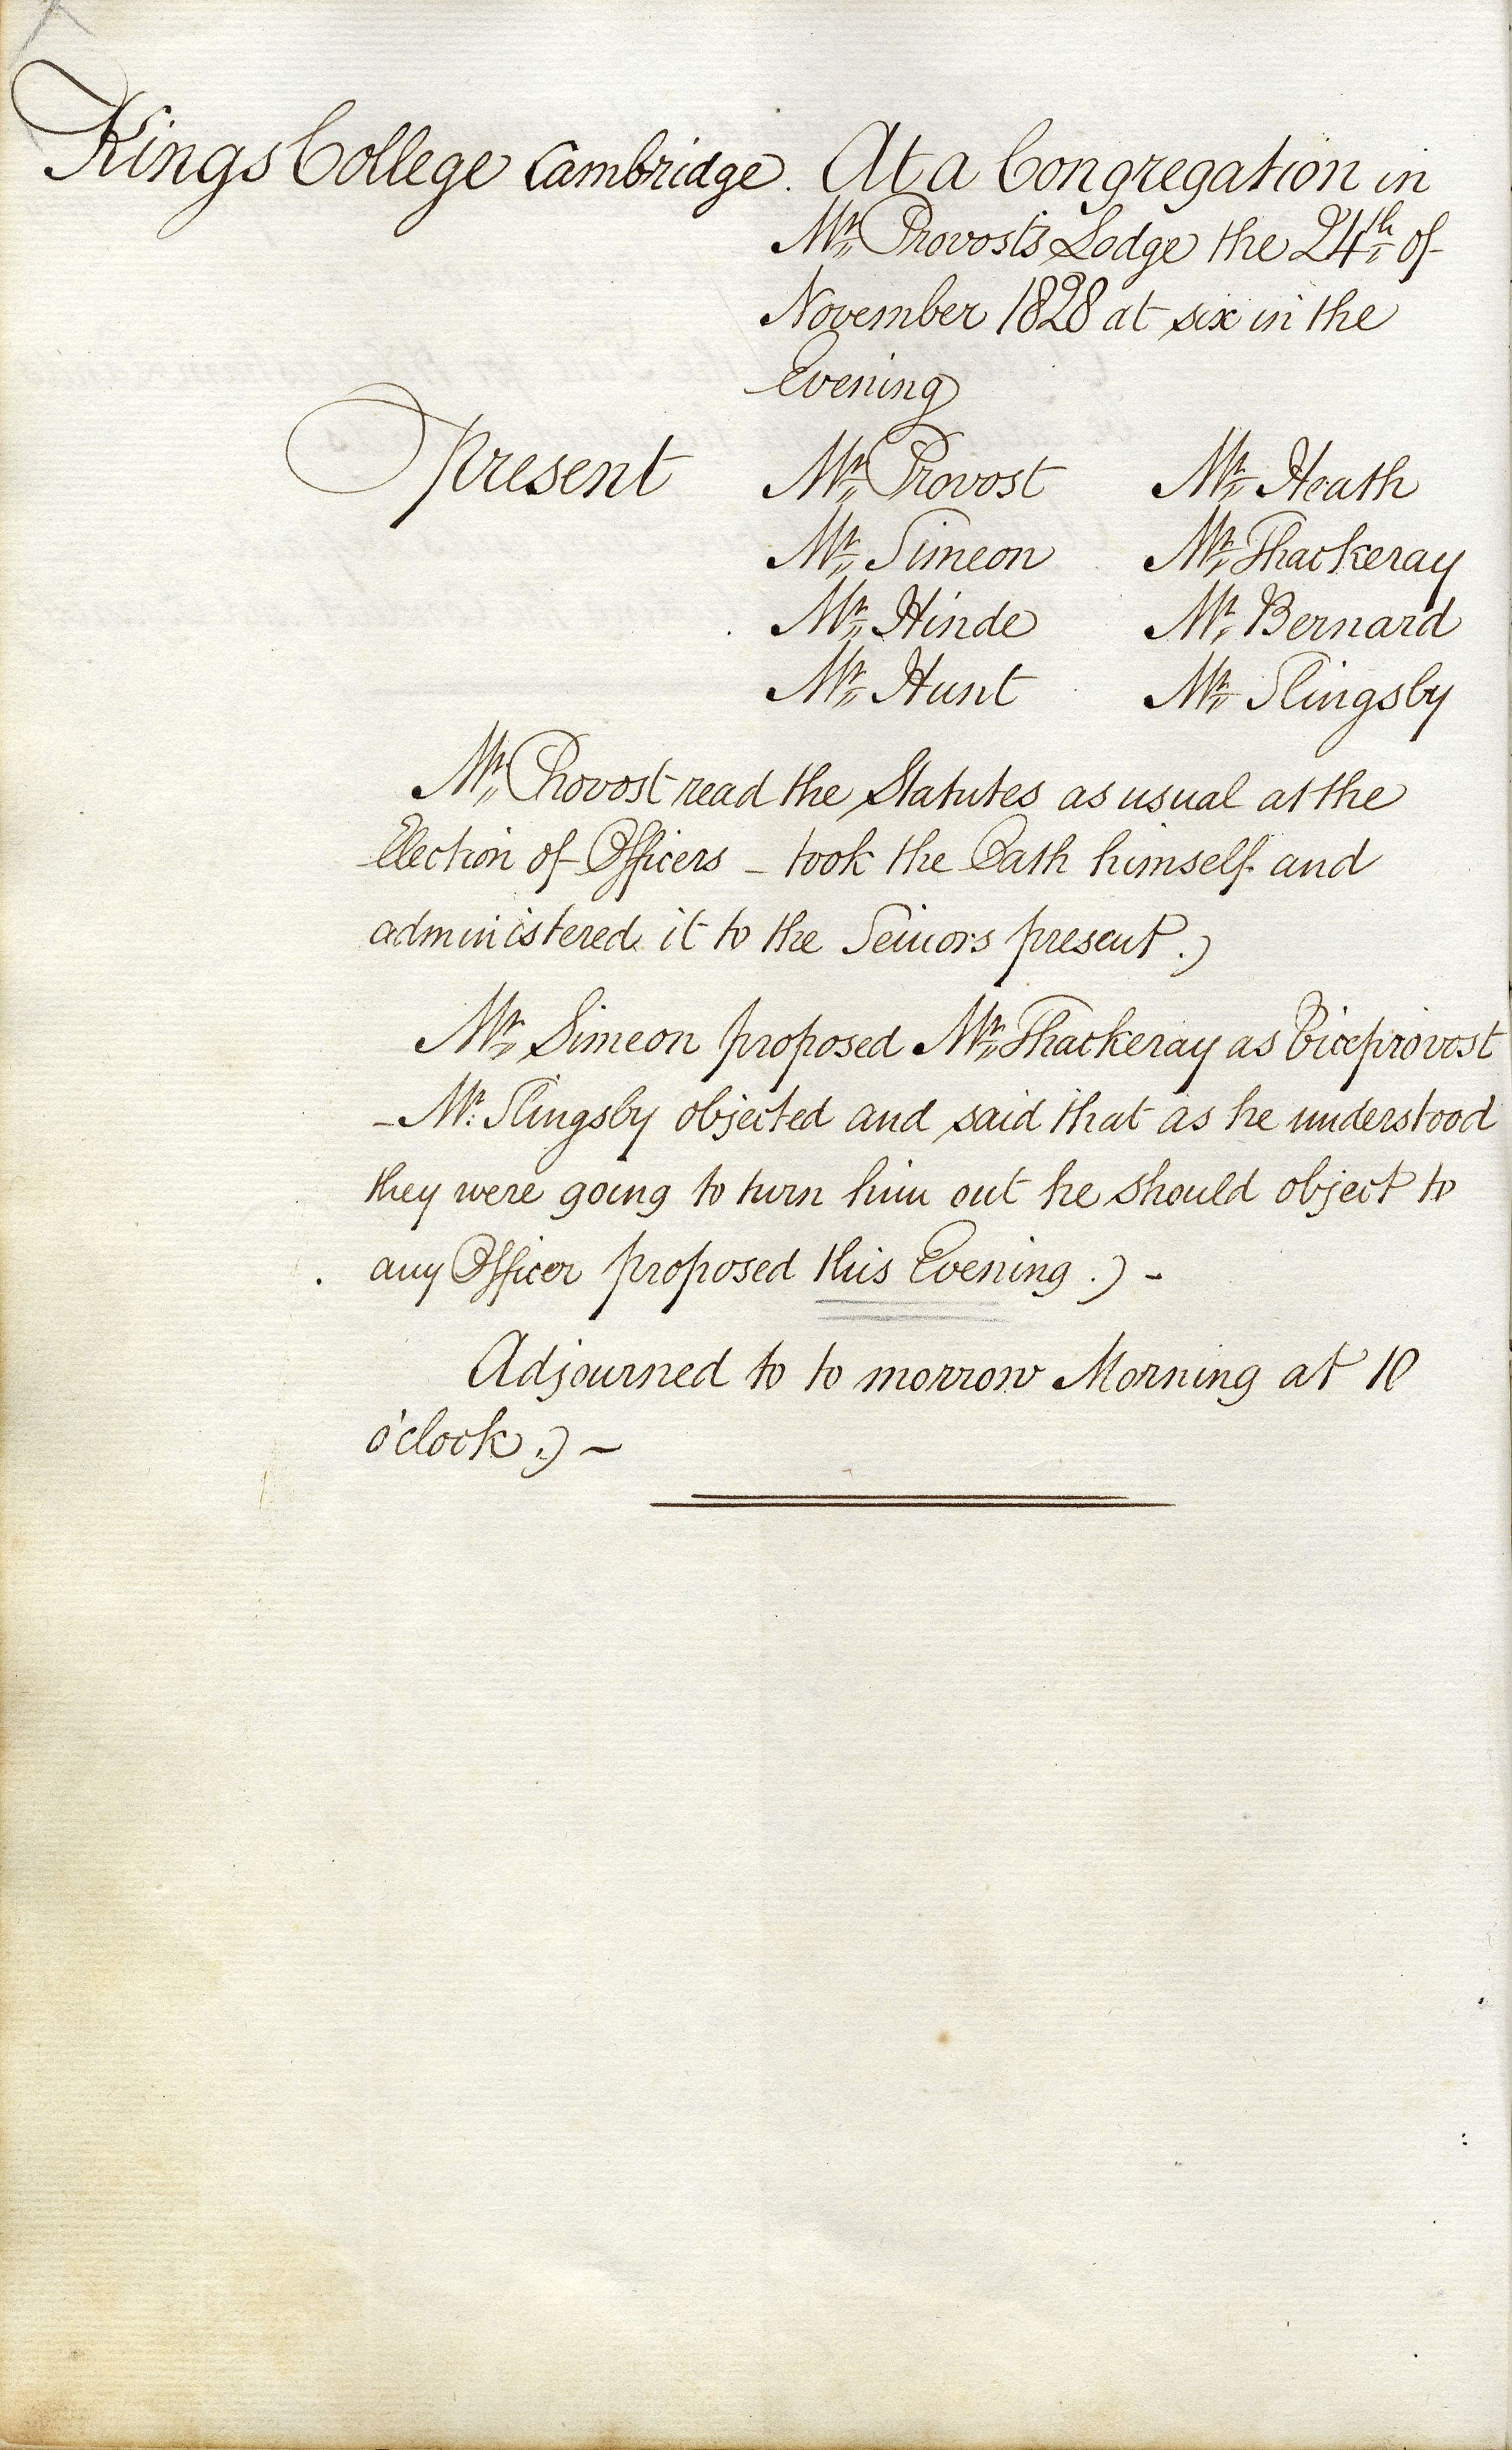 Kings College Cambridge. At a Congregation in
Mr Provost's Lodge the 24th of
November 1828 at six in the
Evening
present Mr Provost Mr Heath
Mr Simeon Mr Thackeray
Mr Hinde Mr Bernard
Mr Hunt Mr Slingsby
Mr Provost read the Statutes as usual at the
Election of Officers - took the Oath himself and
administered it to the Seniors present.)
Mr Simeon proposed Mr Thackeray as Viceprovost
- Mr. Slingsby objected and said that as he understood
they were going to turn him out he should object to
any Officer proposed this Evening.) -
Adjourned to to morrow Morning at 10
o'clock.) -